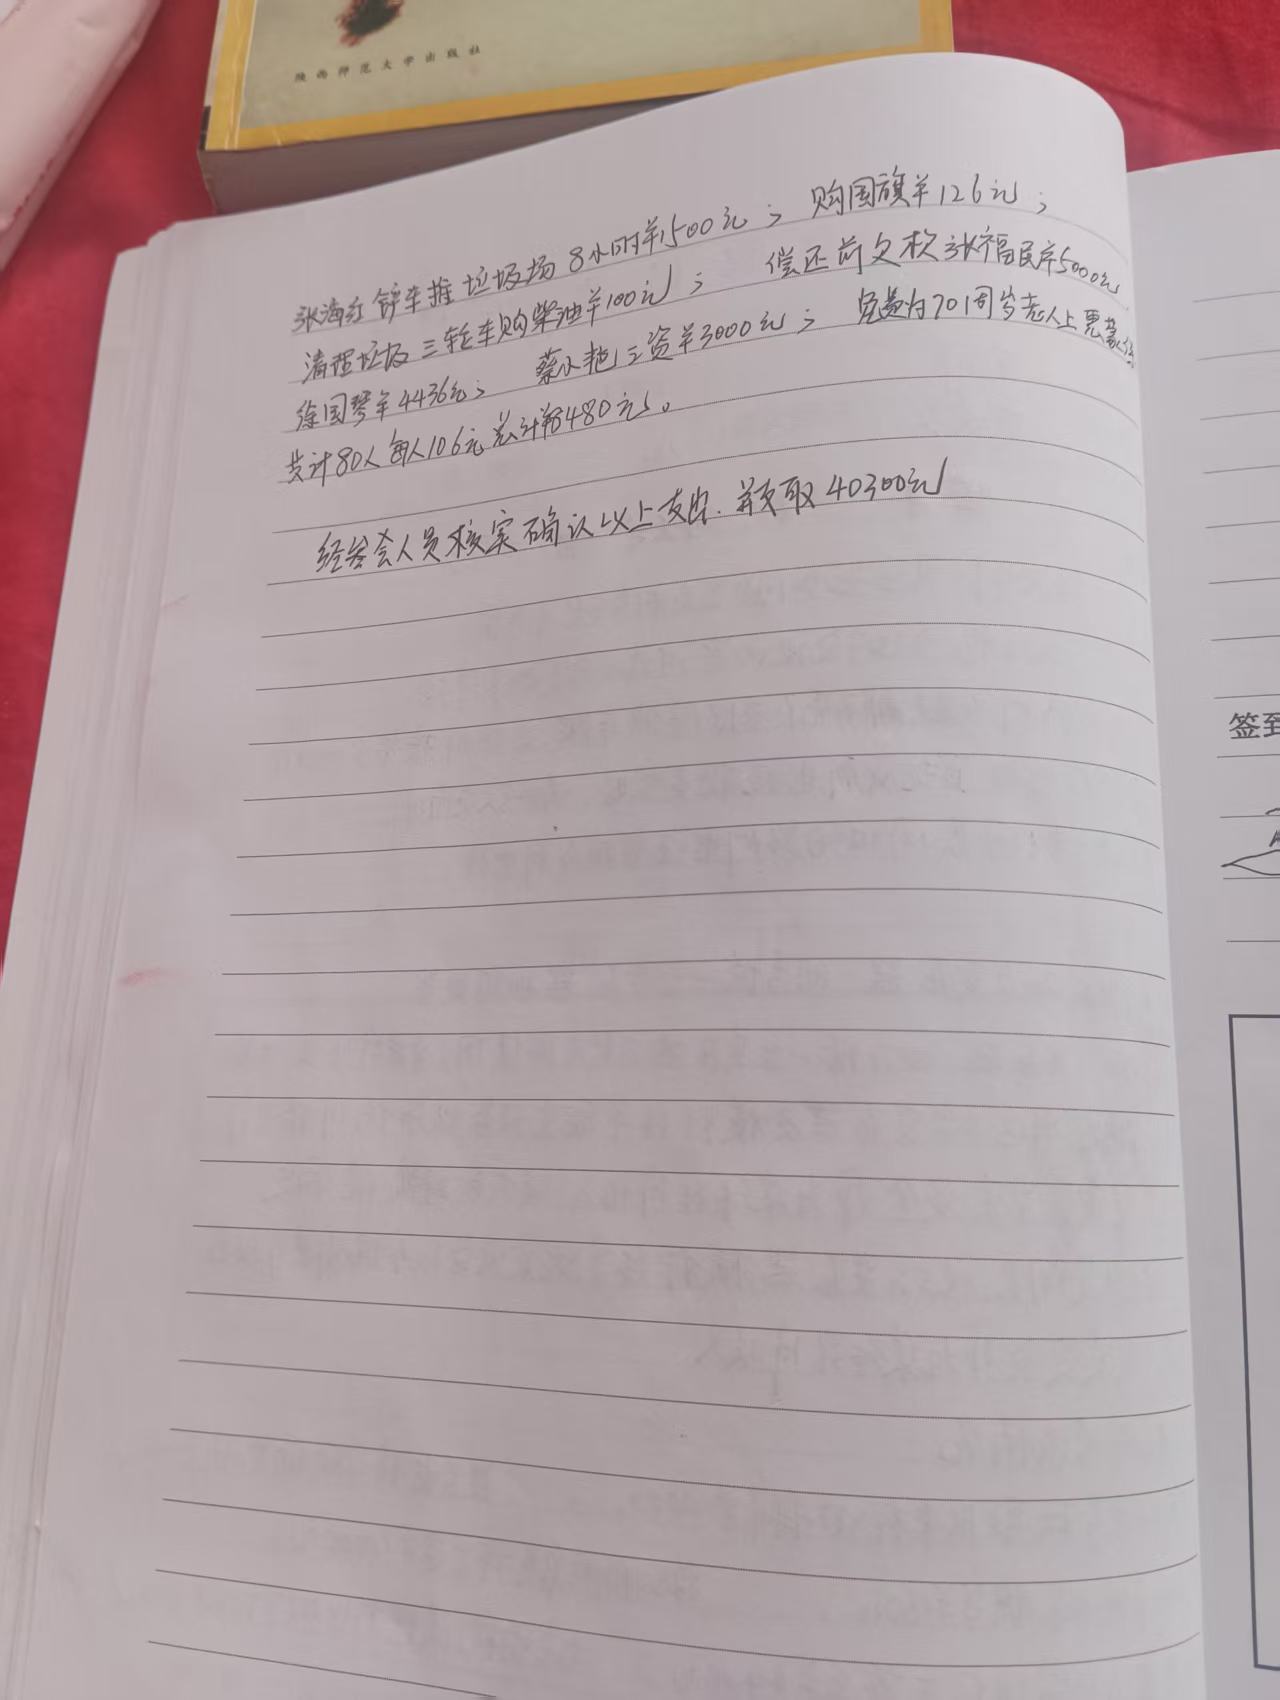 陕西师范大学出版社
张海红铲车推垃圾场8小时¥1500元; 购国旗¥126元;
清理垃圾三轮车购柴油¥100元; 偿还前欠款张福民¥5000元
徐国琴¥4436元; 蔡小艳工资¥3000元; 免费为70周岁老人上惠蒙保
共计80人每人106元总计¥8480元。
经参会人员核实确认以上支出.并支取40300元
签到